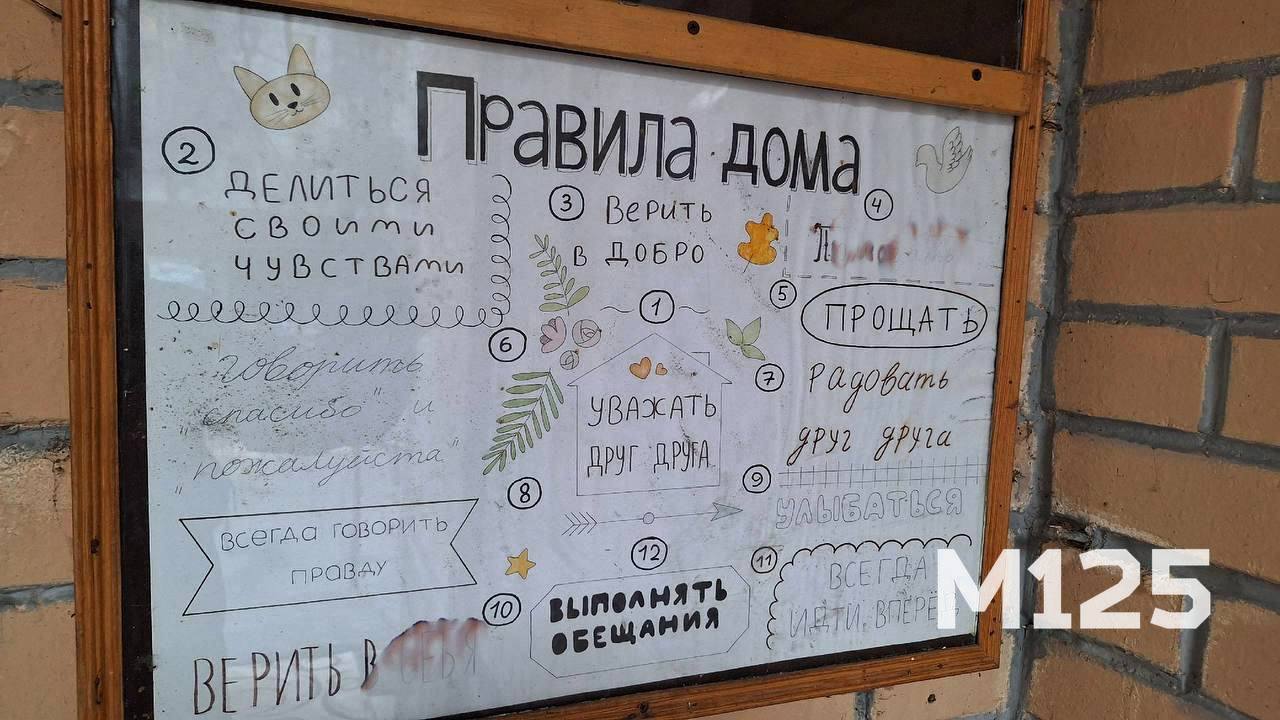 Правила дома
2
ДЕЛИТЬСЯ
СВОИМИ
ЧУВСТВАМИ
3
Верить
в ДОБРО
4
5
ПРОЩАТЬ
1
УВАЖАТЬ
ДРУГ ДРУГА
6
говорить
"спасибо" и
"пожалуйста"
7
Радовать
друг друга
8
ВСЕГДА ГОВОРИТЬ
ПРАВДУ
9
УЛЫБАТЬСЯ
10
ВЕРИТЬ В СЕБЯ
12
ВЫПОЛНЯТЬ
ОБЕЩАНИЯ
11
ВСЕГДА
ИДТИ ВПЕРЁД
М125